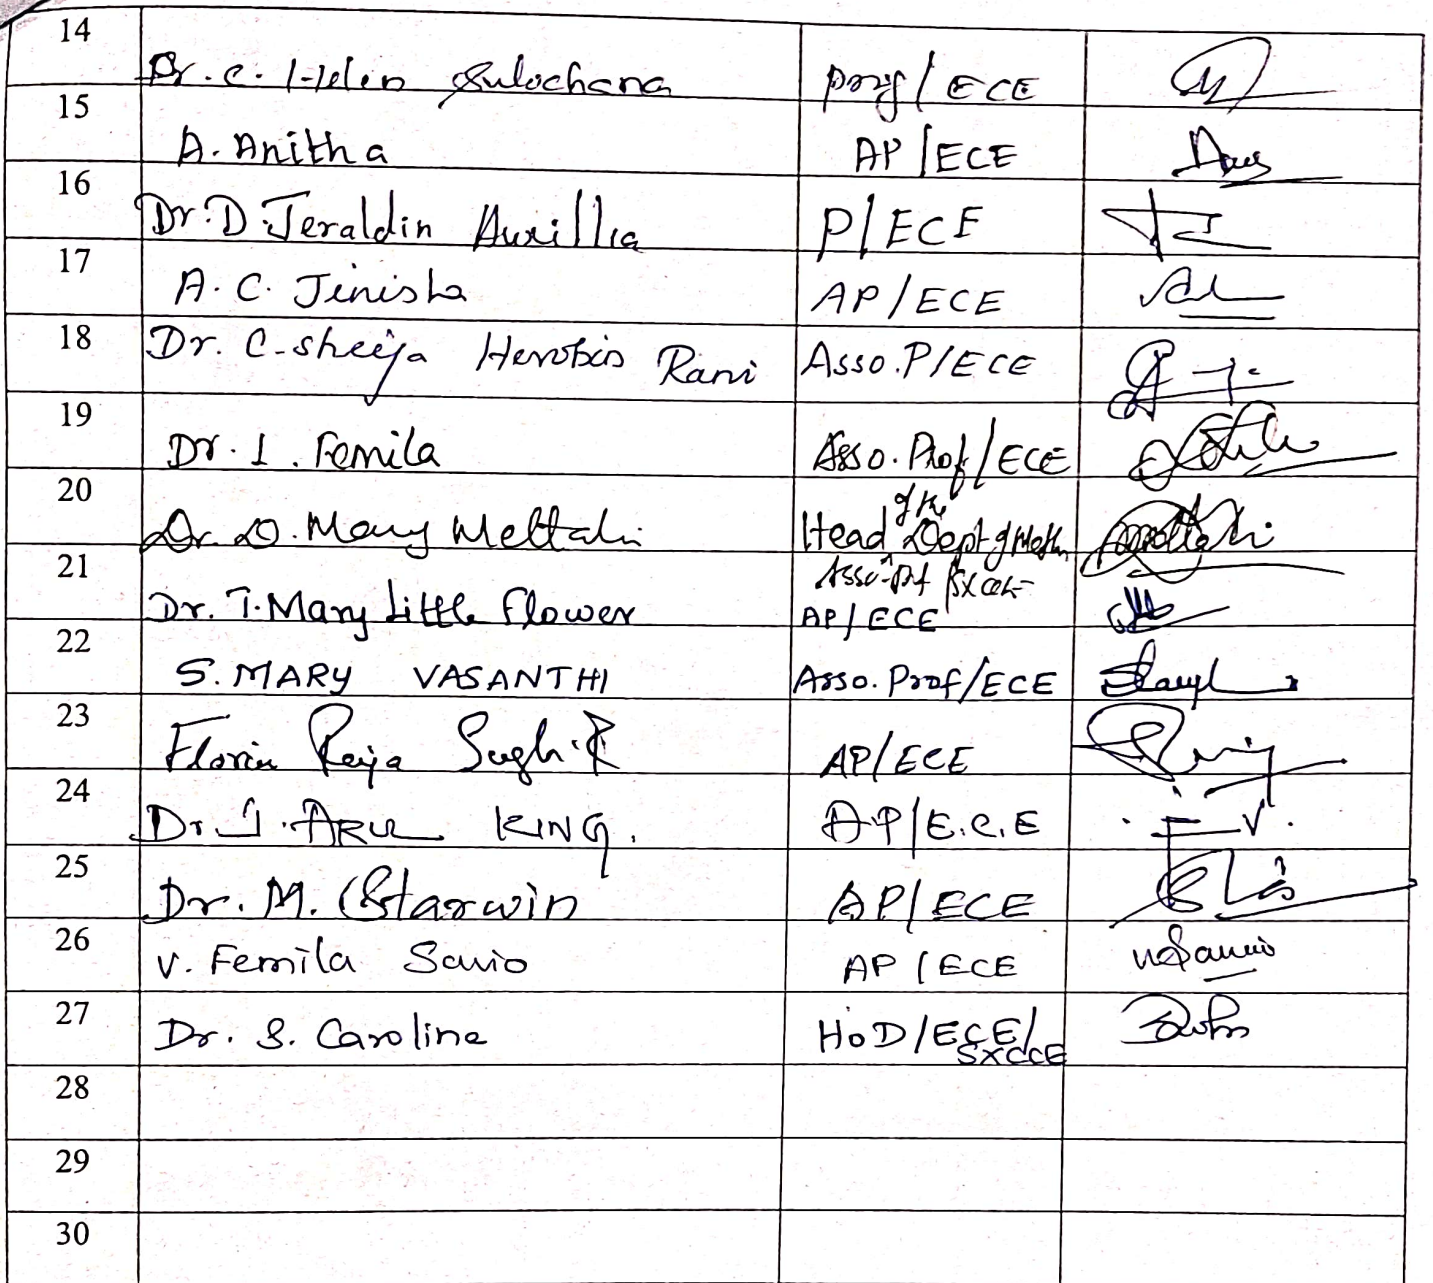 14 Dr. C. Helen Sulochana Prof / ECE
15 A. Anitha AP / ECE
16 Dr. D. Jeraldin Auxillia P / ECE
17 A. C. Jinisha AP / ECE
18 Dr. C. Sheeja Herobin Rani Asso. P / ECE
19 Dr. I. Femila Asso. Prof / ECE
20 Dr. D. Mary Mettahi Head of the Dept of Maths
Asso. Prof SXCCE
21 Dr. T. Mary Little Flower AP / ECE
22 S. MARY VASANTHI Asso. Prof / ECE
23 Raja AP / ECE
24 Dr. J. ARUL KING. A.P / E.C.E
25 Dr. M. Starwin AP / ECE
26 V. Femila Savio AP / ECE
27 Dr. S. Caroline HoD / ECE /
SXCCE
28
29
30